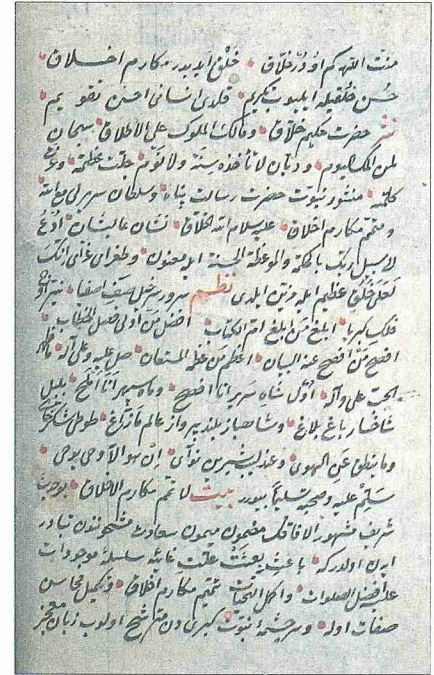 منّت اللّهه كم اودر خلّاق خلق ايدر مكارم اخلاق
حسن خلقيله ايلیوب تكريم قلدى انسانى احسن تقويم
نثر حضرت حكيم خلّاق و مالك الملوك على الاطلاق سبحان
لمن الملك اليوم و ديان لا تأخذه سنة ولا نوم جلّت عظمته و
كلمته منشور نبوت حضرت رسالت پناه و سلطان سرير لى مع الله
و متمّم مكارم اخلاق عليه سلام الله الخلاق نشان عاليشان ادع
الى سبيل ربك بالحكمة والموعظة الحسنة ايله معنون و طغراى غرّاى انك
لعلى خلق عظيم ايله مزيّن ايلدى نظم سرور سرخيل صف اصفيا نيّر اوج
فلك كبريا ابلغ من ابلغ امّ الكتاب افضل من اوتى فصل الخطاب
افصح من افصح عنه البيان اعظم من عظّمه المستعان صلّ عليه و على آله
على وآله اول شاه سرير انا افصح و ماه سپهر انا املح بلبل
شاخسار باغ بلاغ و شاهباز بلند پرواز عالم مازاغ طوطى
وما ينطق عن الهوى و عندليب شيرين نواى ان هو الّا وحى يوحى
سلّم عليه و صحبه تسليما بيت لاتمّم مكارم الاخلاق
شريف مشهور الآفاقك مضمون ميمون سعادت مشحونندن تبادر
ايدن اولدركه باعث بعثت علّت غائيه سلسله موجودات
عليه افضل الصلوات و اكمل التحيات تتميم مكارم اخلاق و تكميل محاسن
صفات اوله و سرچشمه نبوّت كبرى دن مترشّح اولوب زبان معجز